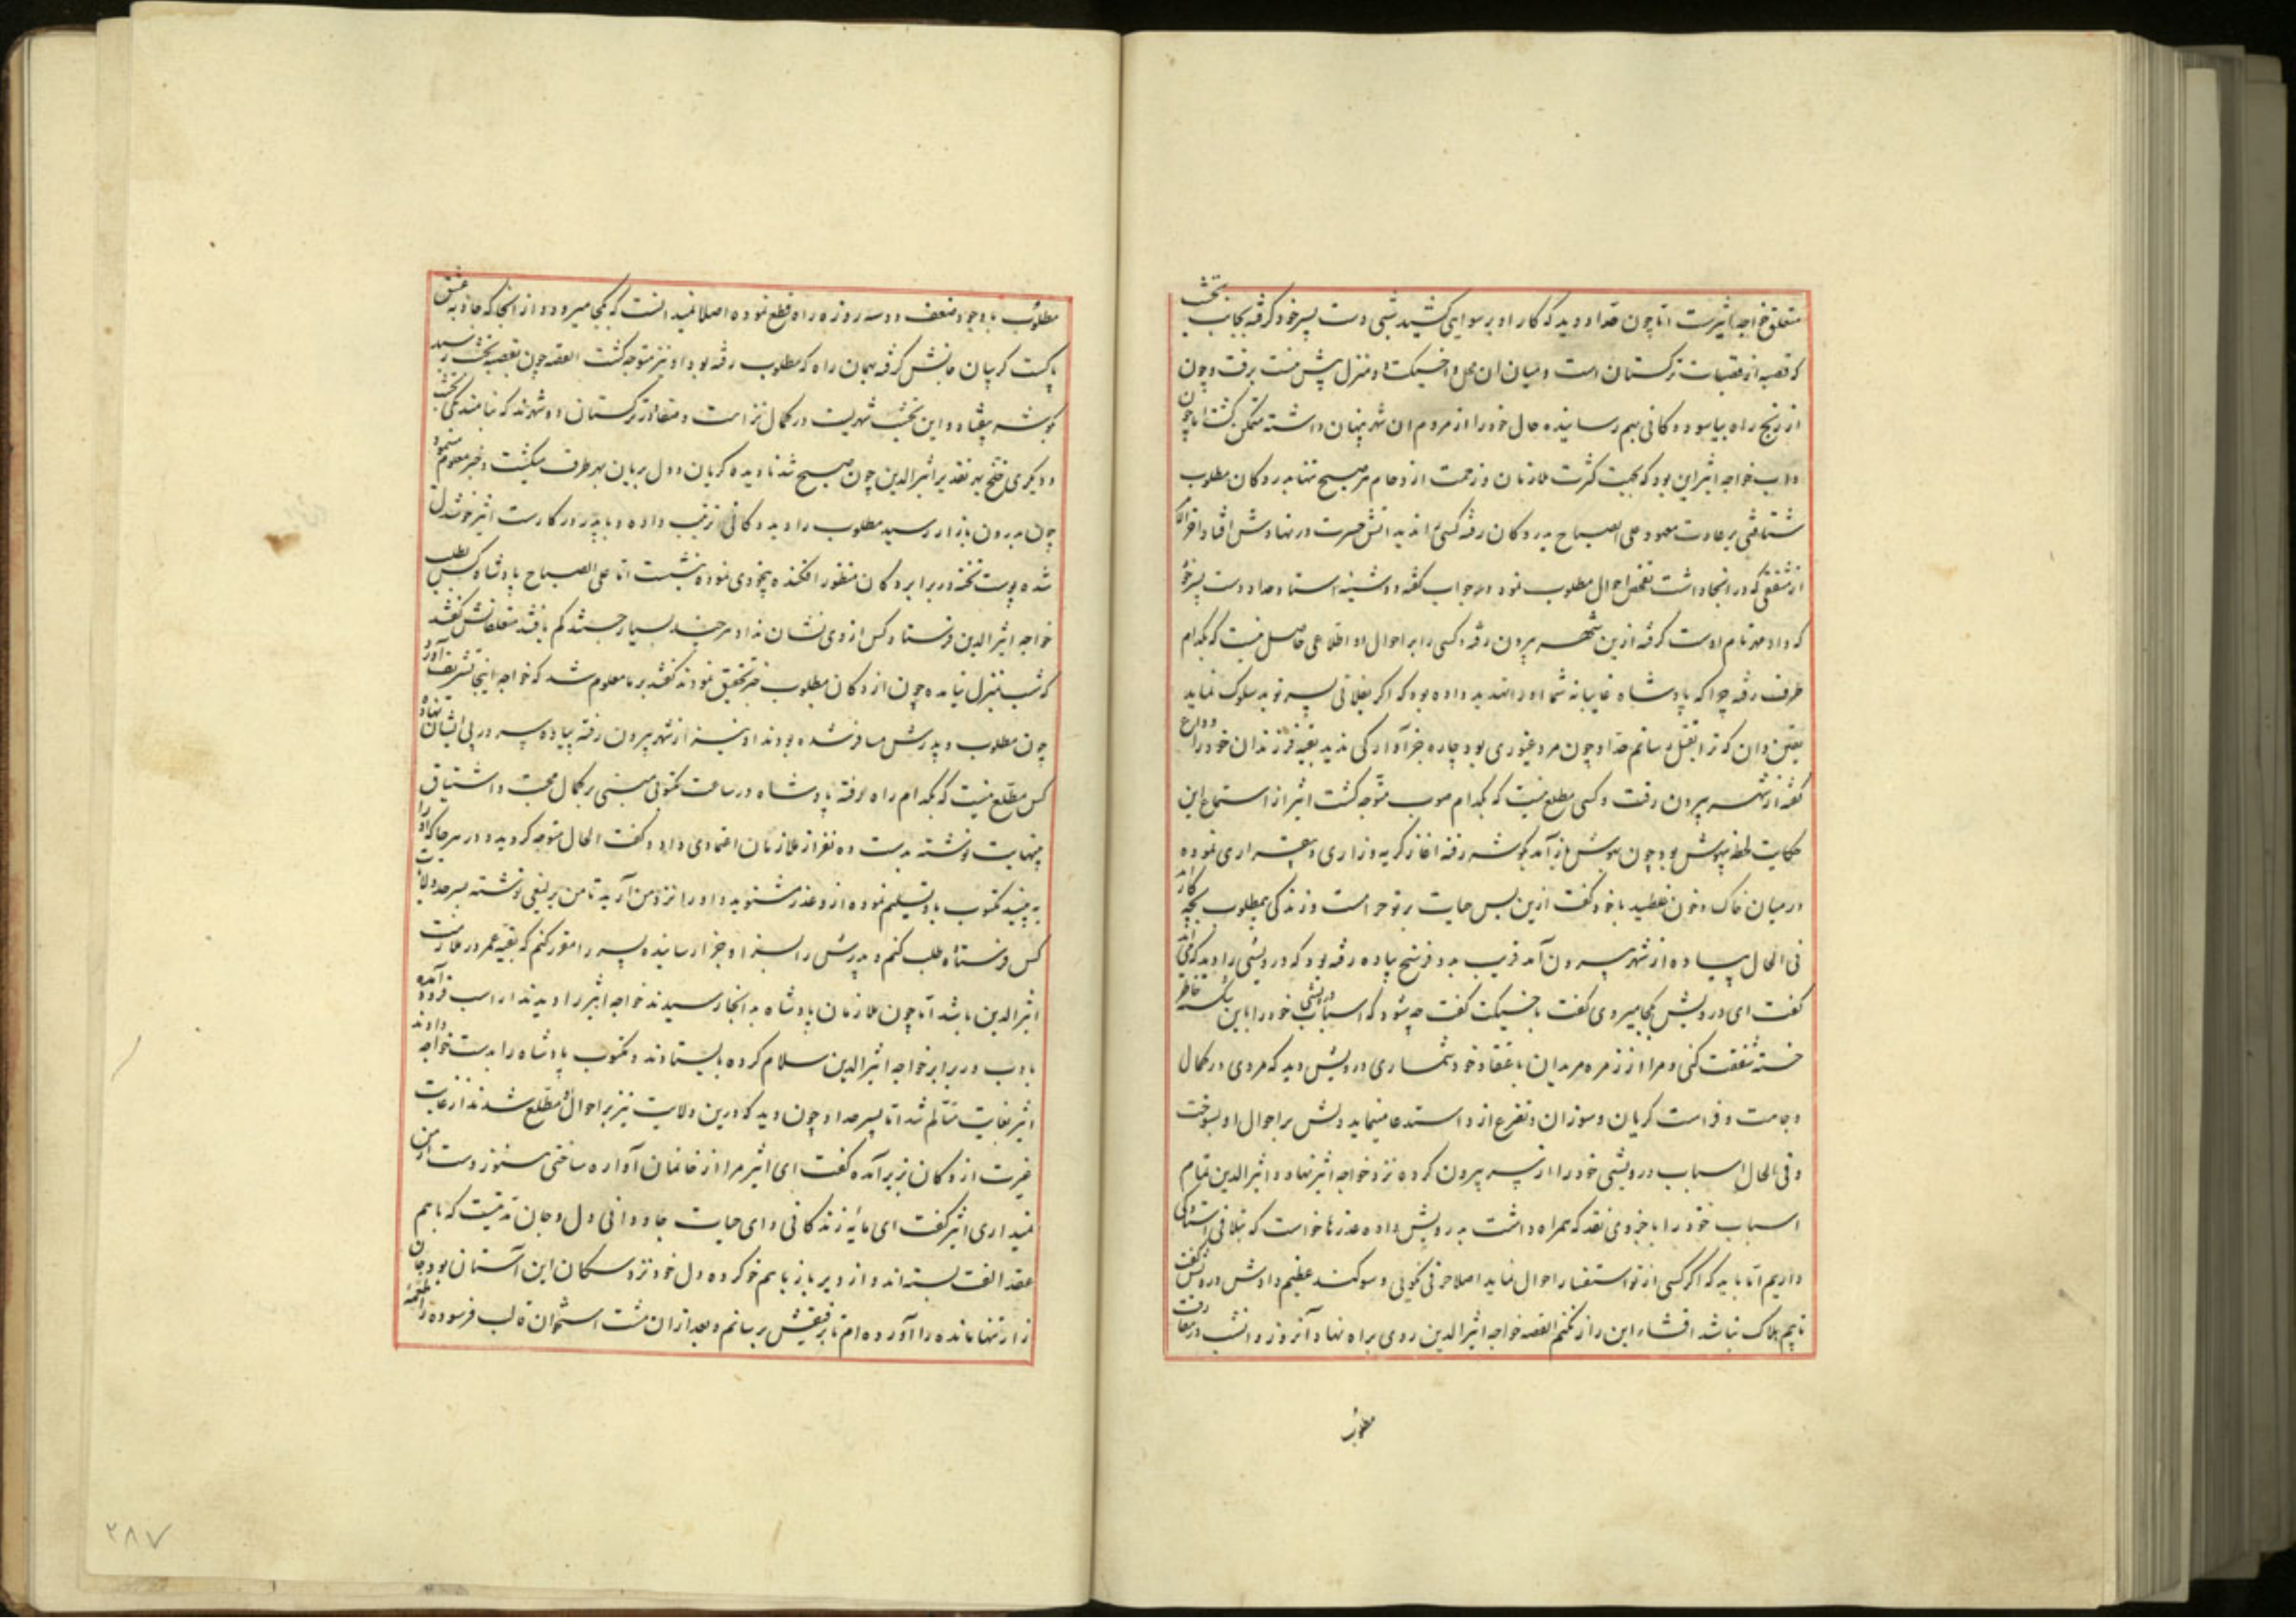 متعلق خواجه اثیرست اما چون حداد دید که کار او برسوایی کشید شبی دست پسر خود گرفته بجانب نخشب
که قصبه از قصبات ترکستان است و میان آن محل و اخسیکت دو منزل پیش نیست برفت و چون
از رنج راه بیاسود دکانی بهم رسانیده حال خود را از مردم آن شهر پنهان داشته متمکن گشت اما چون
داب خواجه اثیر این بود که بجهت کثرت ملازمان و زحمت ازدحام هر صبح تنها بدر دکان مطلوب
شتافتی بر عادت معهود علی الصباح بدر دکان رفته کسی را ندید آتش حسرت در نهادش افتاد آخر الامر
از شفیقی که در آنجا داشت تفحص احوال مطلوب نمود در جواب گفت دوشینه استاد حداد دست پسر خود
که دادمهر نام اوست گرفته ازین شهر بیرون رفته و کسی را بر احوال او اطلاعی حاصل نیست که بکدام
طرف رفته چرا که پادشاه غایبانه شما او را تهدید داده بود که اگر بفلانی پسر تو بد سلوک نماید
یقین دان که ترا بقتل رسانم حداد چون مرد غیوری بود چاره جز آوارگی ندید بقیه فرزندان خود را وداع
گفته از شهر بیرون رفت و کسی مطلع نیست که بکدام صوب متوجه گشت اثیر از استماع این
حکایت لحظه بیهوش بود چون بهوش باز آمد بگوشه رفته آغاز گریه و زاری و بیقراری نموده
در میان خاک و خون غلطید با خود گفت ازین پس حیات بر تو حرام است و زندگی بیمطلوب بچه کار آید
فی الحال پیاده از شهر بیرون آمد قریب بدو فرسخ پیاده رفته بود که درویشی را دید که می آید
گفت ای درویش بکجا میروی گفت باخسیکت گفت چه شود که اسباب درویشی خود را باین شکسته خاطر
خسته شفقت کنی و مرا از زمره مریدان باعتقاد خود شماری درویش دید که مردی در کمال
وجاهت و فراست گریان و سوزان و تضرع ازو استدعا مینماید دلش بر احوال او بسوخت
و فی الحال اسباب درویشی خود را از سر بیرون کرده نزد خواجه اثیر نهاد و اثیر الدین تمام
اسباب خود را با جزوی نقد که همراه داشت بدرویش داده عذرها خواست که بتلافی ایستادگی
داریم اما باید که اگر کسی از تو استفسار احوال نماید اصلا حرفی نگویی و سوگند عظیم دادش درویش گفت
تا بیم هلاک نباشد افشاء این راز نکنم القصه خواجه اثیر الدین روی براه نهاد آنروز و آنشب در مفارقت
مطلوب
مطلوب با وجود ضعف دو سه روزه راه قطع نموده اصلا نمیدانست که بکجا میرود و از آنجا که جاذبه عشق
پاکست گریبان جانش گرفته بهمان راه که مطلوب رفته بود او نیز متوجه گشت القصه چون بقصبه نخشب رسید
بگوشه بیفتاد و این نخشب شهریست در کمال نزاهت و متقاوز ترکستان دو شهرند که بنامند یکی نخشب
و دیگری خلخ بهر تقدیر اثیر الدین چون صبح شد نادیده گریان و دل بریان بهر طرف میگشت و خبر معلوم مینمود
چون بدرون بازار رسید مطلوب را دید دکانی ترتیب داده و با پدر در کارست اثیر خوشدل
شده پوست تخته در برابر دکان منظور افکنده بیخودی نموده بنشست اما علی الصباح پادشاه کس بطلب
خواجه اثیر الدین فرستاد کس از وی نشان نداد هر چند بسیار جستند کم یافتند متعلقانش گفتند
که شب بمنزل نیامده چون از دکان مطلوب خبر تحقیق نمودند گفتند بر ما معلوم شد که خواجه اینجا تشریف آورد
چون مطلوب و پدرش مسافر شده بودند او نیز از شهر بیرون رفته پیاده سر در پی ایشان نهاده
کس مطلع نیست که بکدام راه رفته پادشاه در ساعت مکتوبی مبنی بر کمال محبت و اشتیاق
بینهایت نوشته بدست ده نفر از ملازمان اعتمادی داد و گفت الحال متوجه گردید و در هر جا که او را
ببینید مکتوب باو تسلیم نموده ازو عذر مشنوید و او را نزد من آرید تا من یرلیغی نوشته بسرحد ولایت
کس فرستاده طلب کنم و پدرش را بسزا و جزا رسانیده پسر را مقرر کنم که بقیه عمر در ملازمت
اثیر الدین باشد اما چون ملازمان پادشاه بدانجا رسیدند خواجه اثیر را دیدند از اسب فرود آمده
بادب در برابر خواجه اثیر الدین سلام کرده بایستادند و مکتوب پادشاه را بدست خواجه دادند
اثیر بغایت متألم شد اما پسر حداد چون دید که درین ولایت نیز بر احوال او مطلع شدند از غایت
غیرت از دکان بزیر آمده گفت ای اثیر مرا از خانمان آواره ساختی هنوز دست از من
نمیداری اثیر گفت ای مایه زندگانی و ای حیات جاودانی دل و جان مدتیست که با هم
عقد الفت بسته اند و از دیر باز با هم خو کرده دل خود نزد سکان این آستان بود جان
زار تنها مانده را آورده ام تا برفیقش برسانم و بعد از آن مشت استخوان قالب فرسوده را طعمه
۲۸۷